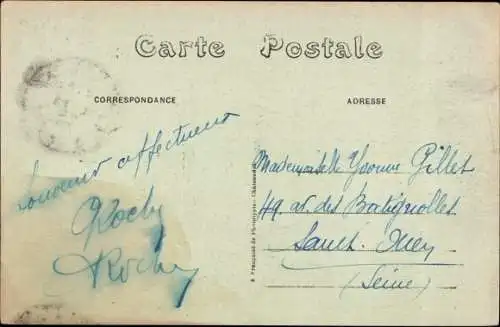 Carte Postale
CORRESPONDANCE
ADRESSE
Souvenir affectueux
Rocby
Rocby
Mademoiselle Yvonne Gillet
49 av. des Batignolles
Saint-Ouen
(Seine)